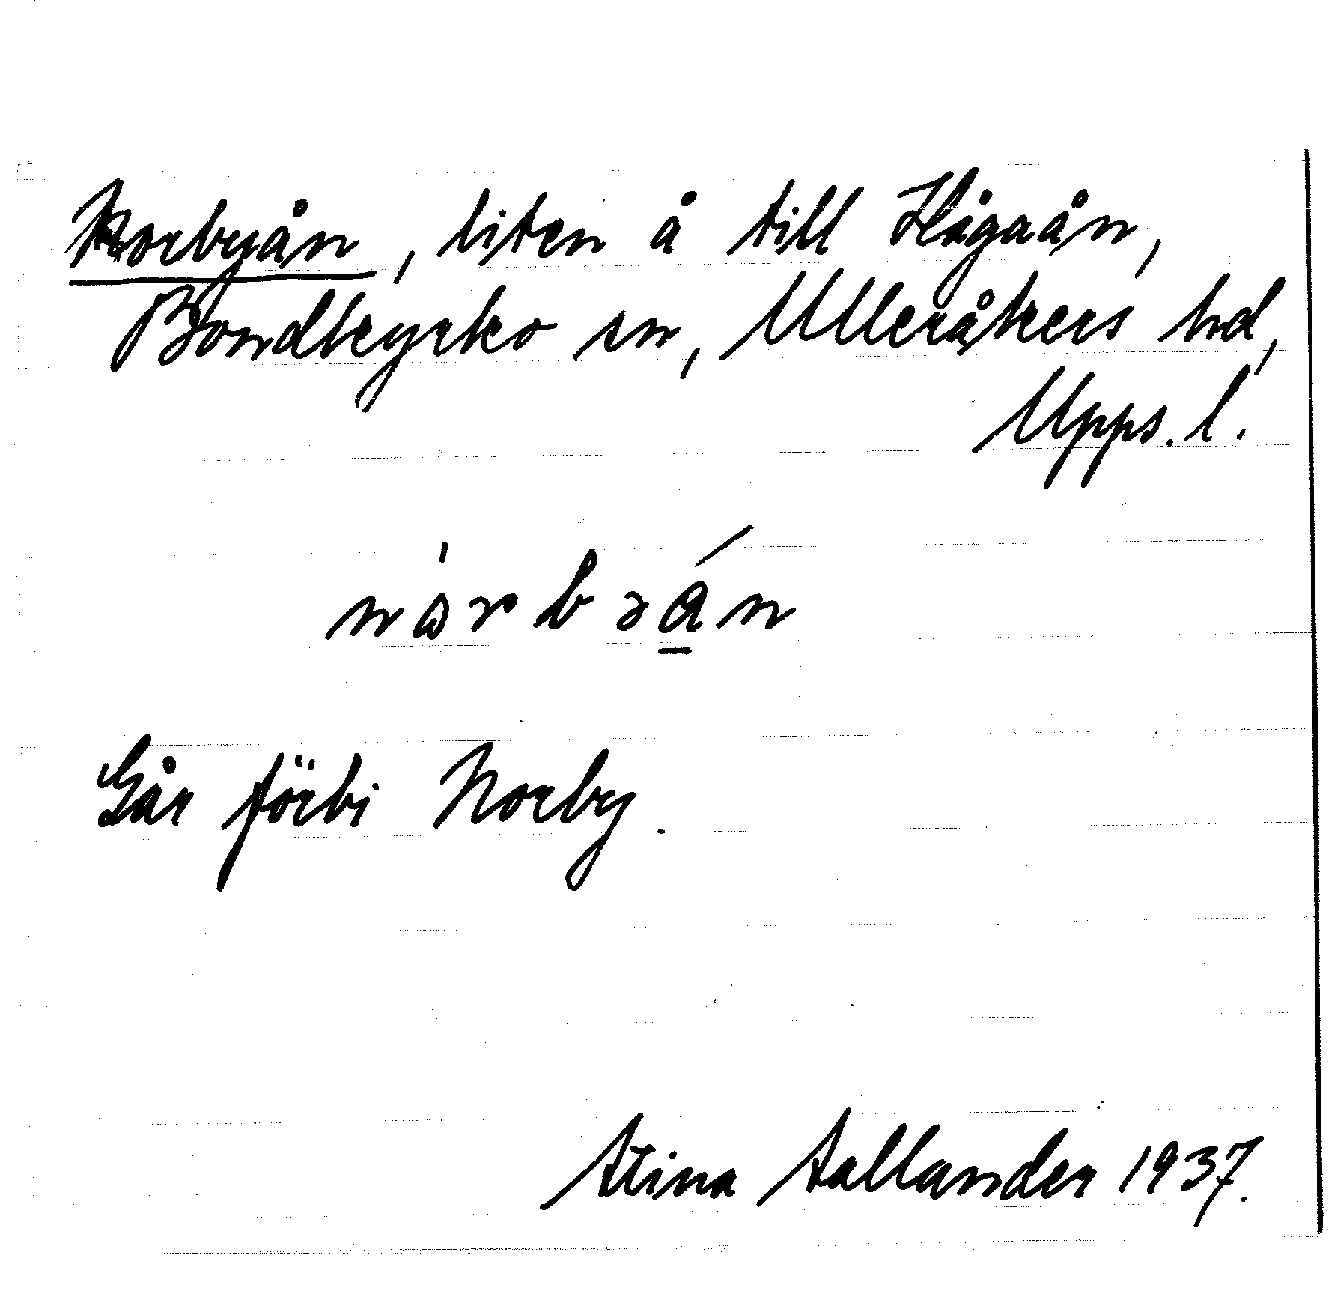 Norbyån, liten å till Hågaån,
Bondkyrko sn, Ulleråkers hd,
Upps. l.
Går förbi Norby.
Stina Sallander 1937.